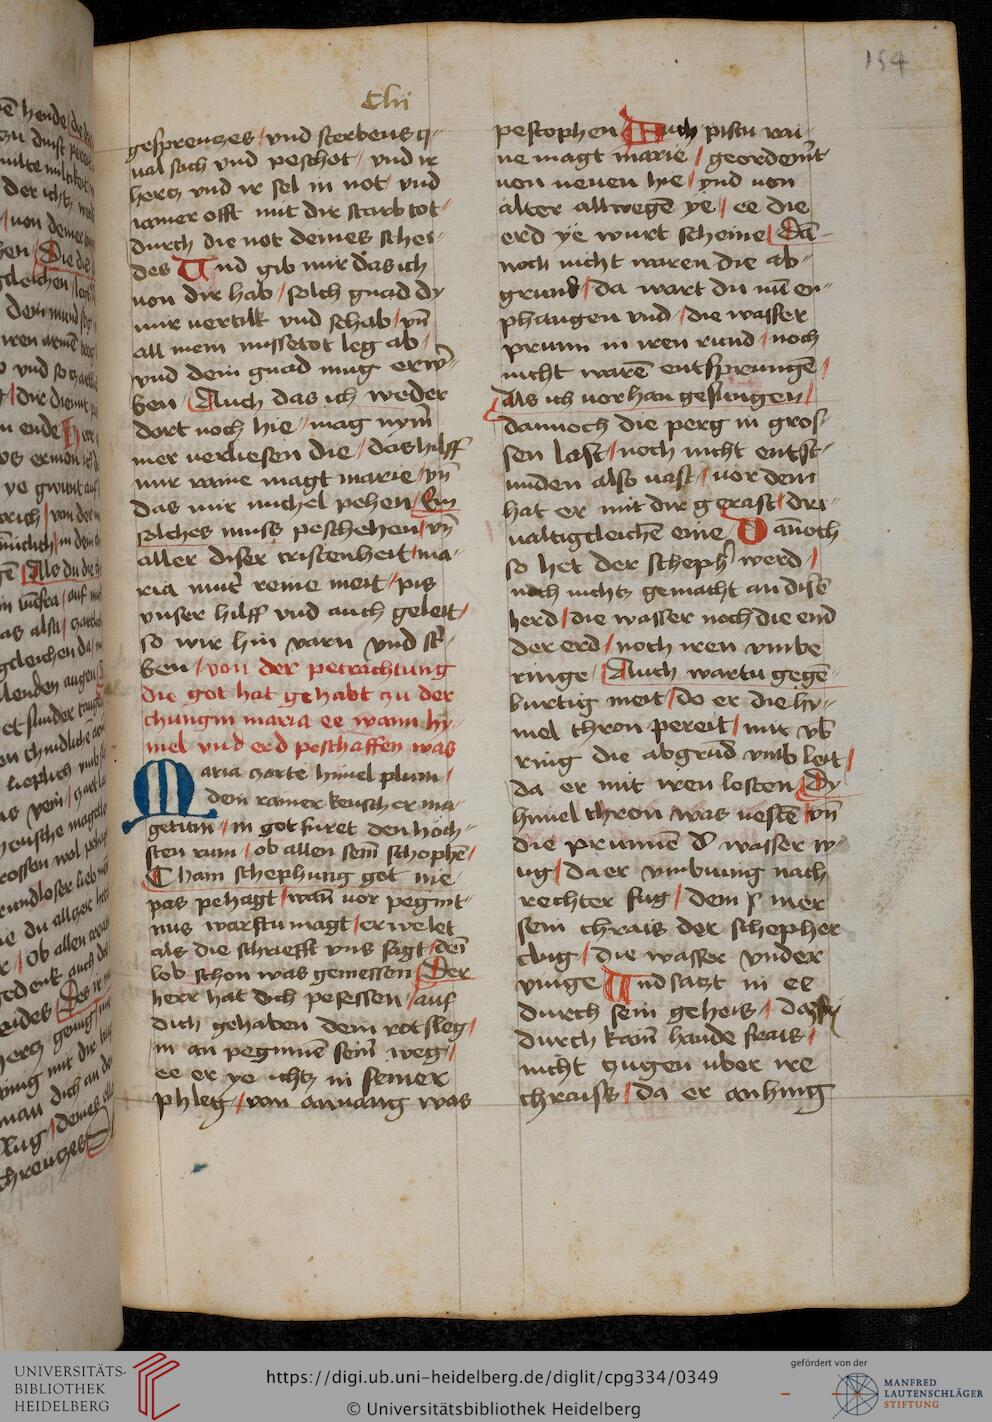 Clii
154
gesprenczes / vnd sterbens q-
ual sach vnd peschot / vnd ir
hercz vnd ir sel in not / vnd
iamer offt mit dir starb tot /
durch die not deines schei-
des Vnd gib mir das ich
von dir hab / solch gnad dy
mir vertilk vnd schab / vn̄
all mein missetot leg ab /
vnd dein gnad mug erwer̄-
ben / Auch das ich weder
dort noch hie / mag nym̄
mer verliesen die / das hilff
mir raine magt marie / vn̄
das mir michel pehen / Ein
solches muss peschehen / vn̄
aller diser cristenheit / ma-
ria mut̄ reine meit / pis
vnser hilff vnd auch geleit /
so wir hin varn vnd st̄-
ben / von der petrachtung
die got hat gehabt zu der
chungin maria ee wann hy-
mel vnd erd peschaffen was
Maria zarte himel plum /
dein rainer keusch er ma-
getum / in got furet den hoch-
sten rum / ob allen sein̄ schophē /
Chain schephung got nie
pas pehagt / wan̄ vor pegint-
nus warstu magt / er welet
als die schrifft vns sagt / dein̄
lob schon was gemessen / Der
herr hat dich pesessen / auf
dich gehaben dein rotsleg /
in an peginnē sein̄ weg /
ee er ye ichtz in seiner
phleg / von anuang was
pestophen Auch pistu rai-
ne magt marie / geordemt
von neuen hie / vnd von
alter allwegē ye / ee die
erd ye wurt scheine / Dā-
noch nicht waren die ab-
grund / da wart du nū en-
phangen vnd / die wasser
prunn in iren rund / noch
nicht warē entsprungē /
Als ich vor han gesungen /
dannoch die perg in gros-
sen last / noch nicht entst-
unden also vast / vor dem
hat er mit dir gerast / dri-
ualtigleichē eine / Dannoch
so het der scheph̄ werd /
noch nichtz gemacht an disē
herd / die wasser noch die end
der erd / noch iren vmbe
ringe / Auch wartu gegē-
burtig meit / do er die hy-
mel thron pereit / mit vb̄
ring die abgrūd vmb leit /
da er mit iren lesten / Dy
himel thron was vestē vn̄
die prunnē d̄ wasser w-
ug / da er vmbuing nach
rechter fug / dem mer
sein chrais der schepher
clug / die wasser vnder
vinge Vnd satzt in ee
durch sein geheis / das sy
durch kain̄ hande frais /
nicht zugen vber ire
chraiss / da er anhing
UNIVERSITÄTS-
BIBLIOTHEK
HEIDELBERG
https://digi.ub.uni-heidelberg.de/diglit/cpg334/0349
© Universitätsbibliothek Heidelberg
gefördert von der
MANFRED
LAUTENSCHLÄGER
STIFTUNG